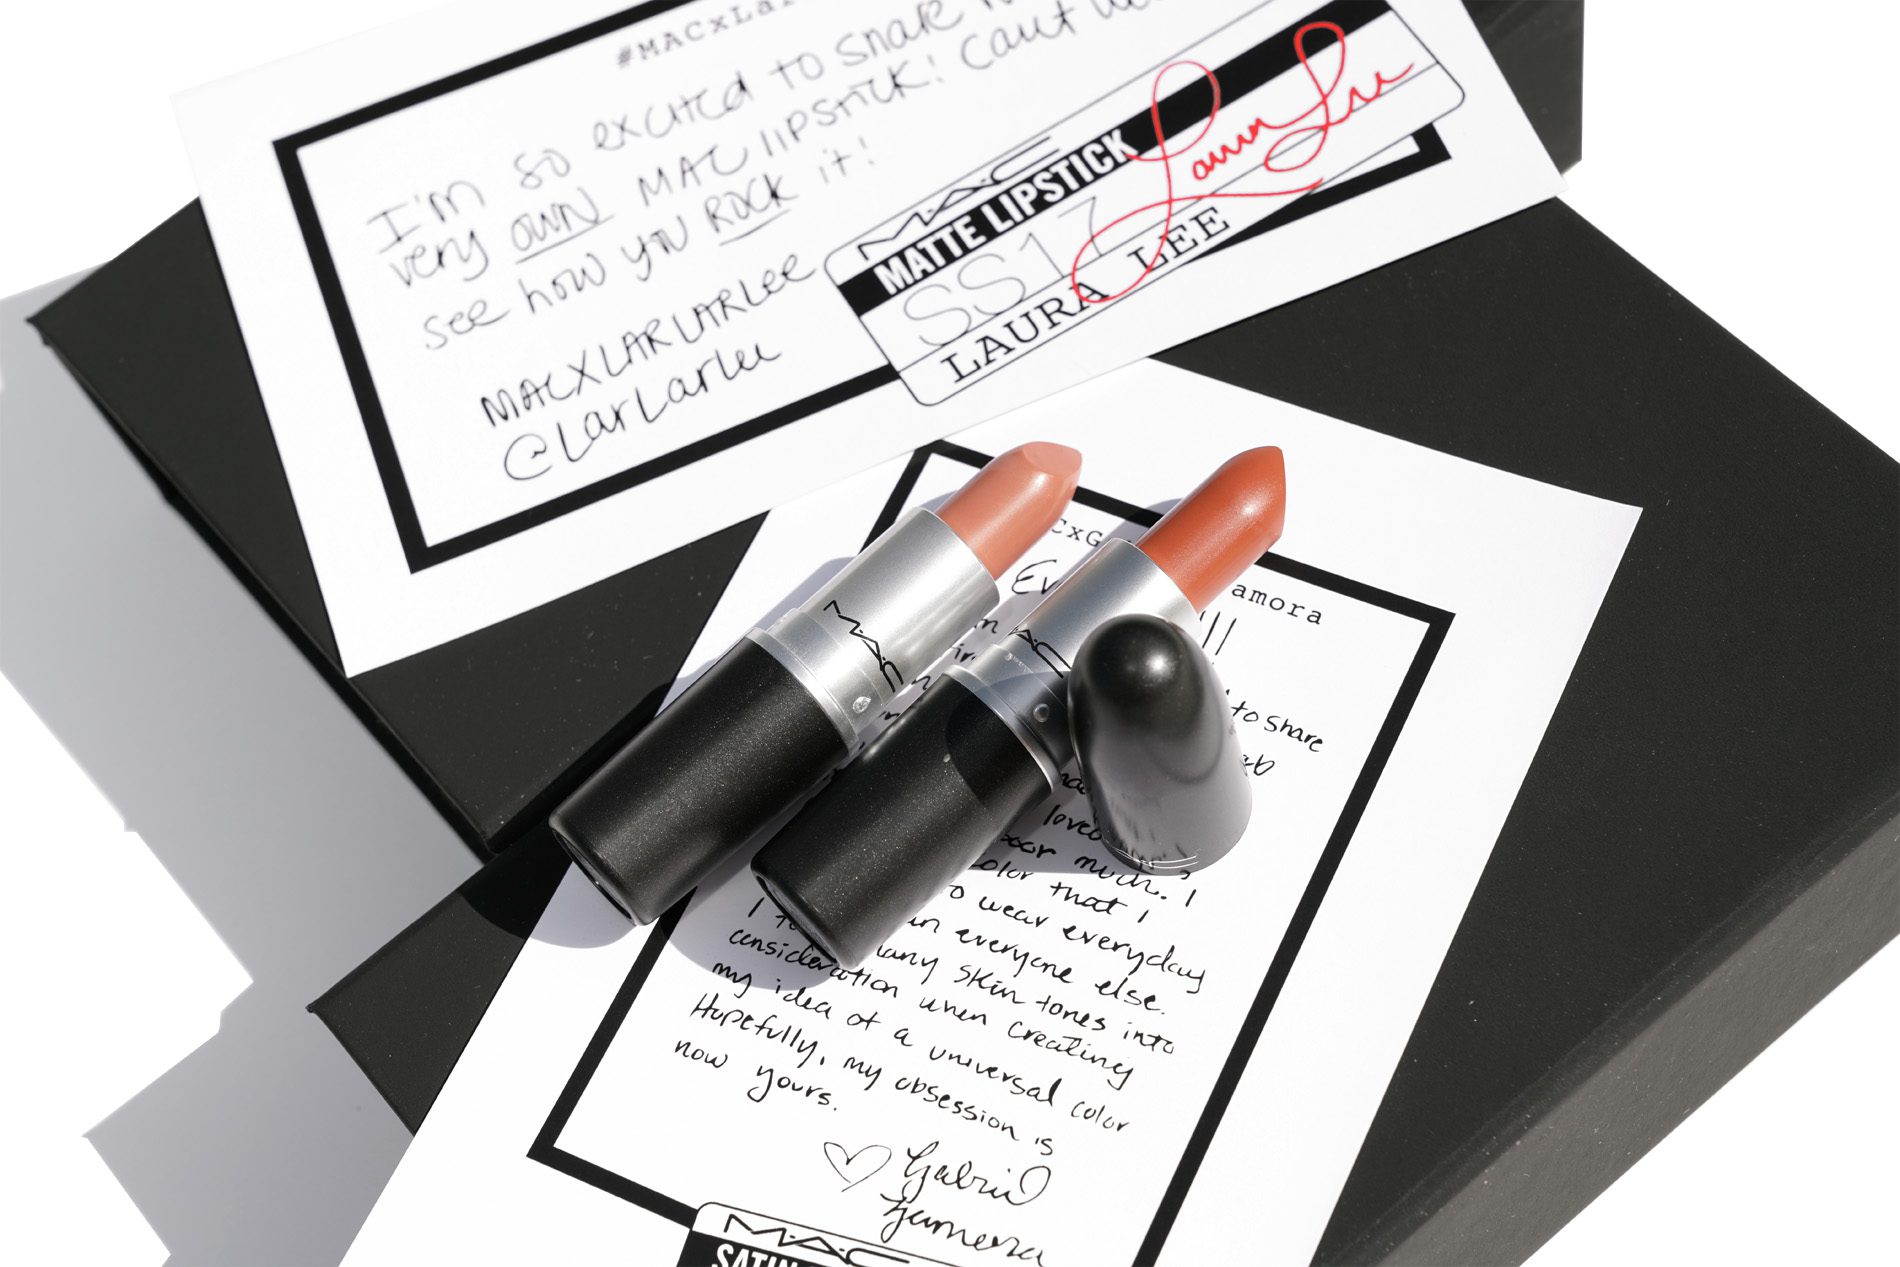 #MACxLar
I'm so excited to share
very own MAC lipstick! Can't
see how you ROCK it!
MACXLARLARLee
@LarLarlee
M·A·C
MATTE LIPSTICK
SS17
LAURA LEE
Laura Lee
CxG amora
to share
loved
much. I
color that I
to wear everyday
everyone else.
I skin tones into
consideration when creating
my idea of a universal color
Hopefully, my obsession is
now yours.
♡ Gabriel
Zamora
M·A·C
SATIN
M·A·C
M·A·C